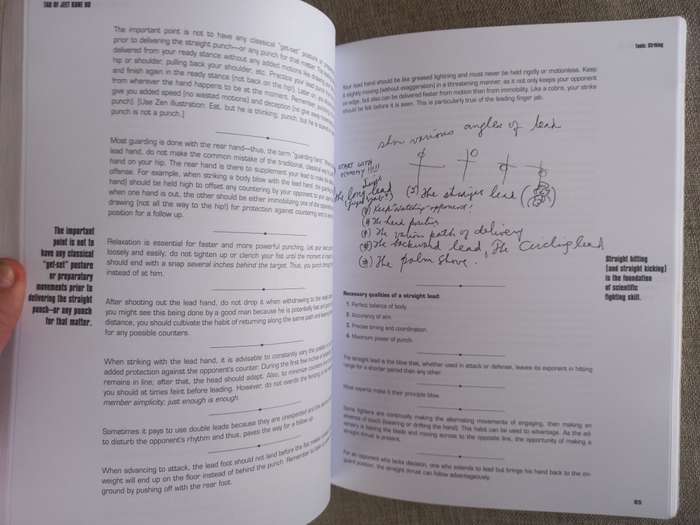 TAO OF JEET KUNE DO
The important point is not to have any classical "get-set" posture or
prior to delivering the straight punch—or any punch for that matter. The
delivered from your ready stance without any added motions like drawing
hip or shoulder, pulling back your shoulder, etc. Practice your lead punch
and finish again in the ready stance (not back on the hip!). Later on, you should
from wherever the hand happens to be at the moment. Remember, punching
give you added speed (no wasted motions) and deception (no give away
punch). [Use Zen illustration: Eat, but he is thinking; punch, but he is
punch is not a punch.]
Most guarding is done with the rear hand—thus, the term "guarding hand."
lead hand, do not make the common mistake of the traditional, classical
hand on your hip. The rear hand is there to supplement your lead to make
offense. For example, when striking a body blow with the lead hand, the
hand) should be held high to offset any countering by your opponent to your
when one hand is out, the other should be either immobilizing one of the opponent's
drawing (not all the way to the hip!) for protection against countering and to
position for a follow up.
The important
point is not to
have any classical
"get-set" posture
or preparatory
movements prior to
delivering the straight
punch—or any punch
for that matter.
Relaxation is essential for faster and more powerful punching. Let your lead
loosely and easily; do not tighten up or clench your fist until the moment
should end with a snap several inches behind the target. Thus, you punch
instead of at him.
After shooting out the lead hand, do not drop it when withdrawing to the
you might see this being done by a good man because he is
distance, you should cultivate the habit of returning along the same path and
for any possible counters.
When striking with the lead hand, it is advisable to constantly vary the position
added protection against the opponent's counter. During the first few inches of
remains in line; after that, the head should adapt. Also, to minimize counters
you should at times feint before leading. However, do not overdo the feinting or
member simplicity; just enough is enough.
Sometimes it pays to use double leads because they are unexpected and the
to disturb the opponent's rhythm and thus, paves the way for a follow up.
When advancing to attack, the lead foot should not land before the fist makes
weight will end up on the floor instead of behind the punch. Remember to
ground by pushing off with the rear foot.
Tools: Striking
Your lead hand should be like greased lightning and must never be held rigidly or motionless. Keep
it slightly moving (without exaggeration) in a threatening manner, as it not only keeps your opponent
on edge, but also can be delivered faster from motion than from immobility. Like a cobra, your strike
should be felt before it is seen. This is particularly true of the leading finger jab.
show various angles of lead
START WITH
ECONOMY !!!!
The long lead (2) The shorter lead
(3) Keep watching opponent!
The head position
The various path of delivery
The backward lead, The circling lead
The palm shove.
Straight hitting
(and straight kicking)
is the foundation
of scientific
fighting skill.
Necessary qualities of a straight lead:
1. Perfect balance of body.
2. Accuracy of aim.
3. Precise timing and coordination.
4. Maximum power of punch.
The straight lead is the blow that, whether used in attack or defense, leaves its exponent in hitting
range for a shorter period than any other.
Most experts make it their principle blow.
Some fighters are continually making the alternating movements of engaging, then making an
absence of touch (lowering or drifting the hand). This habit can be used to advantage. As the ad-
versary is leaving the blade and moving across to the opposite line, the opportunity of making a
straight thrust is present.
For an opponent who lacks decision, one who extends to lead but brings his hand back to the on-
guard position, the straight thrust can follow advantageously.
65